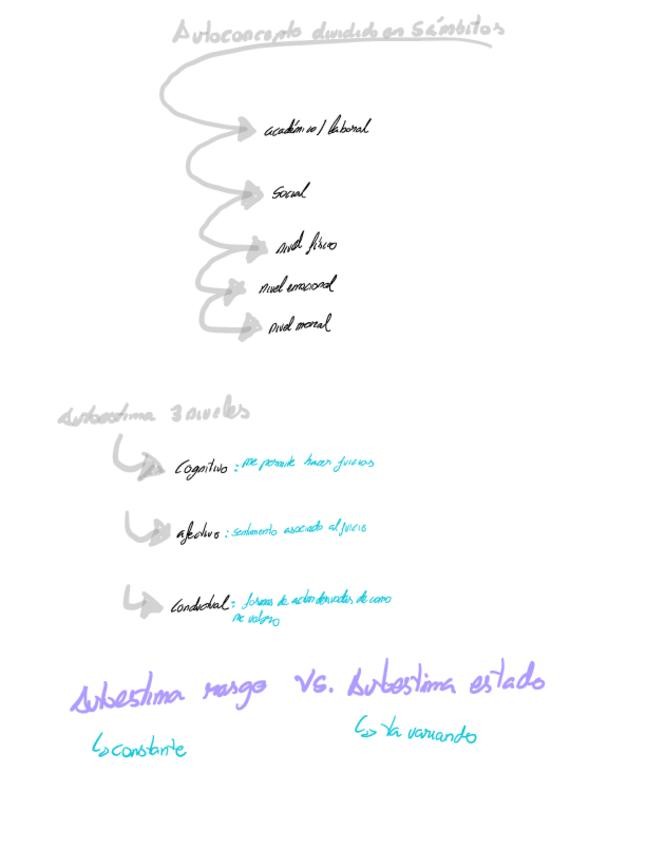 Autoconcepto dividido en 5 ámbitos
académico / laboral
Social
nivel físico
nivel emocional
nivel moral
Autoestima 3 niveles
Cognitivo : me permite hacer juicios
afectivo : sentimiento asociado al juicio
Conductual : formas de actuar derivadas de como
me valoro
Autoestima rasgo VS. Autoestima estado
↳ constante
↳ Va variando